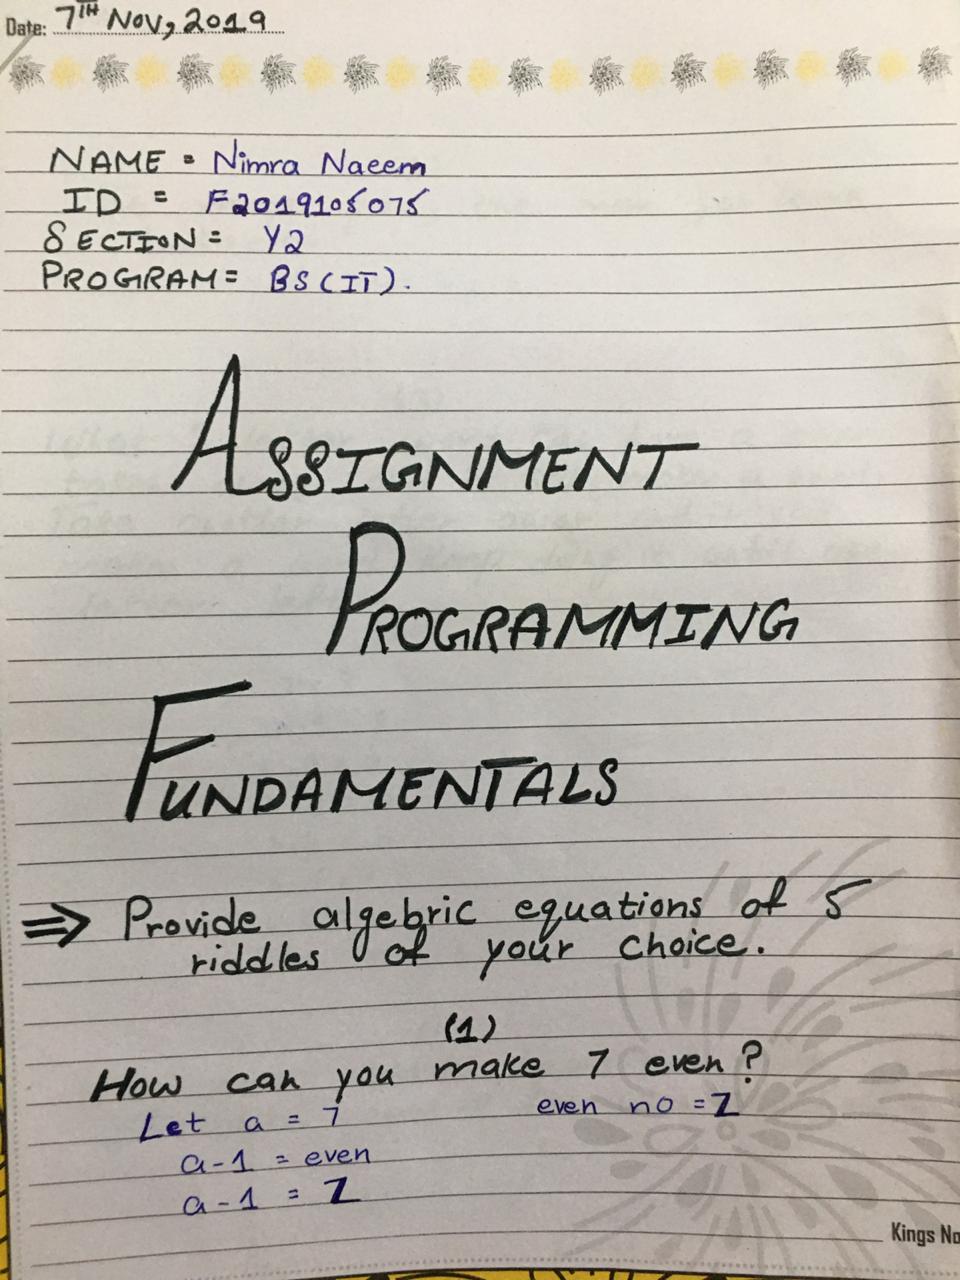 Date: 7TH Nov, 2019
NAME = Nimra Naeem
ID = F2019105075
SECTION = Y2
PROGRAM = BS(IT).
ASSIGNMENT
PROGRAMMING
FUNDAMENTALS
⇒ Provide algebric equations of 5
riddles of your choice.
(1)
How can you make 7 even?
Let a = 7 even no = Z
a-1 = even
a-1 = Z
Kings No